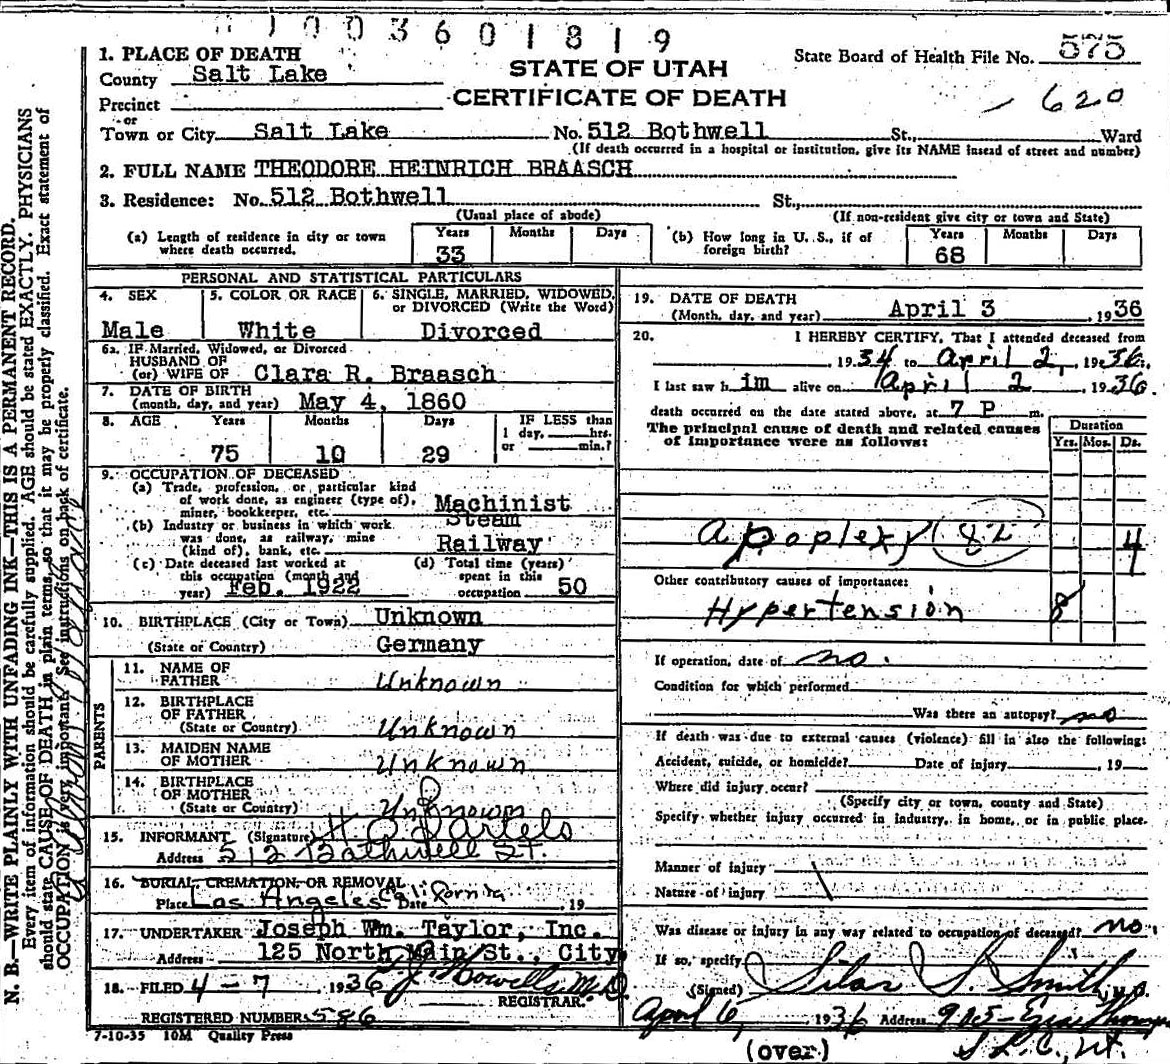 1003601819
1. PLACE OF DEATH
County Salt Lake
STATE OF UTAH
State Board of Health File No. 575
Precinct
CERTIFICATE OF DEATH
620
or
Town or City Salt Lake No. 512 Bothwell St., Ward
(If death occurred in a hospital or institution, give its NAME insead of street and number)
2. FULL NAME THEODORE HEINRICH BRAASCH
3. Residence: No. 512 Bothwell St.,
(Usual place of abode) (If non-resident give city or town and State)
(a) Length of residence in city or town where death occurred. Years 33 Months Days
(b) How long in U. S., if of foreign birth? Years 68 Months Days
PERSONAL AND STATISTICAL PARTICULARS
4. SEX Male
5. COLOR OR RACE White
6. SINGLE, MARRIED, WIDOWED, or DIVORCED (Write the Word) Divorced
6a. IF Married, Widowed, or Divorced
HUSBAND OF
(or) WIFE OF Clara R. Braasch
7. DATE OF BIRTH
(month, day, and year) May 4, 1860
8. AGE Years 75 Months 10 Days 29 IF LESS than 1 day, hrs. or min.?
9. OCCUPATION OF DECEASED
(a) Trade, profession, or particular kind
of work done, as engineer (type of),
miner, bookkeeper, etc. Machinist
(b) Industry or business in which work
was done, as railway, mine
(kind of), bank, etc. Steam Railway
(c) Date deceased last worked at
this occupation (month and
year) Feb. 1922
(d) Total time (years)
spent in this
occupation 50
10. BIRTHPLACE (City or Town) Unknown
(State or Country) Germany
PARENTS
11. NAME OF
FATHER Unknown
12. BIRTHPLACE
OF FATHER
(State or Country) Unknown
13. MAIDEN NAME
OF MOTHER Unknown
14. BIRTHPLACE
OF MOTHER
(State or Country) Unknown
15. INFORMANT (Signature) H. O. Bartels
Address 512 Bothwell St.
16. BURIAL, CREMATION, OR REMOVAL
Place Los Angeles California Date 19
17. UNDERTAKER Joseph Wm. Taylor, Inc.
Address 125 North Main St., City
18. FILED 4-7 1936
M.D.
REGISTRAR.
REGISTERED NUMBER 586
7-10-35 10M Quality Press
19. DATE OF DEATH
(Month, day, and year) April 3, 1936
20. I HEREBY CERTIFY, That I attended deceased from
1934 to April 2, 1936.
I last saw h im alive on April 2 1936.
death occurred on the date stated above, at 7 P m.
The principal cause of death and related causes
of importance were as follows:
Duration
Yrs. Mos. Ds.
Apoplexy 82 4
Other contributory causes of importance:
Hypertension 8
If operation, date of no.
Condition for which performed
Was there an autopsy? no
If death was due to external causes (violence) fill in also the following:
Accident, suicide, or homicide? Date of injury, 19
Where did injury occur?
(Specify city or town, county and State)
Specify whether injury occurred in industry, in home, or in public place.
Manner of injury
Nature of injury
Was disease or injury in any way related to occupation of deceased? no.
If so, specify
(Signed) Silas S. Smith, M.D.
April 6, 1936 Address
S. L. C., Ut.
(over)
N. B.—WRITE PLAINLY WITH UNFADING INK—THIS IS A PERMANENT RECORD.
Every item of information should be carefully supplied. AGE should be stated EXACTLY. PHYSICIANS
should state CAUSE OF DEATH in plain terms, so that it may be properly classified. Exact statement of
OCCUPATION is very important. See instructions on back of certificate.